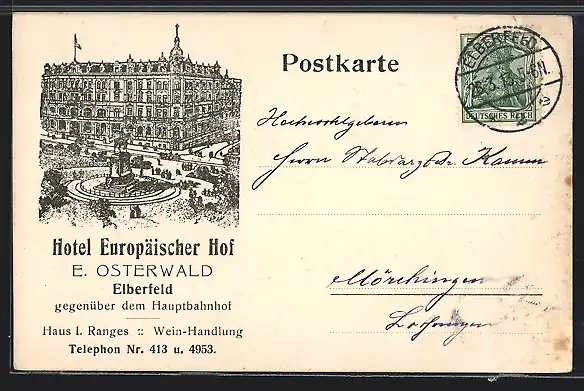 Postkarte
ELBERFELD
DEUTSCHES REICH
Hochwohlgeboren
Herrn Stabsarzt Dr. Kamm
Mörchingen
Lothringen
Hotel Europäischer Hof
E. OSTERWALD
Elberfeld
gegenüber dem Hauptbahnhof
Haus I. Ranges :: Wein-Handlung
Telephon Nr. 413 u. 4953.